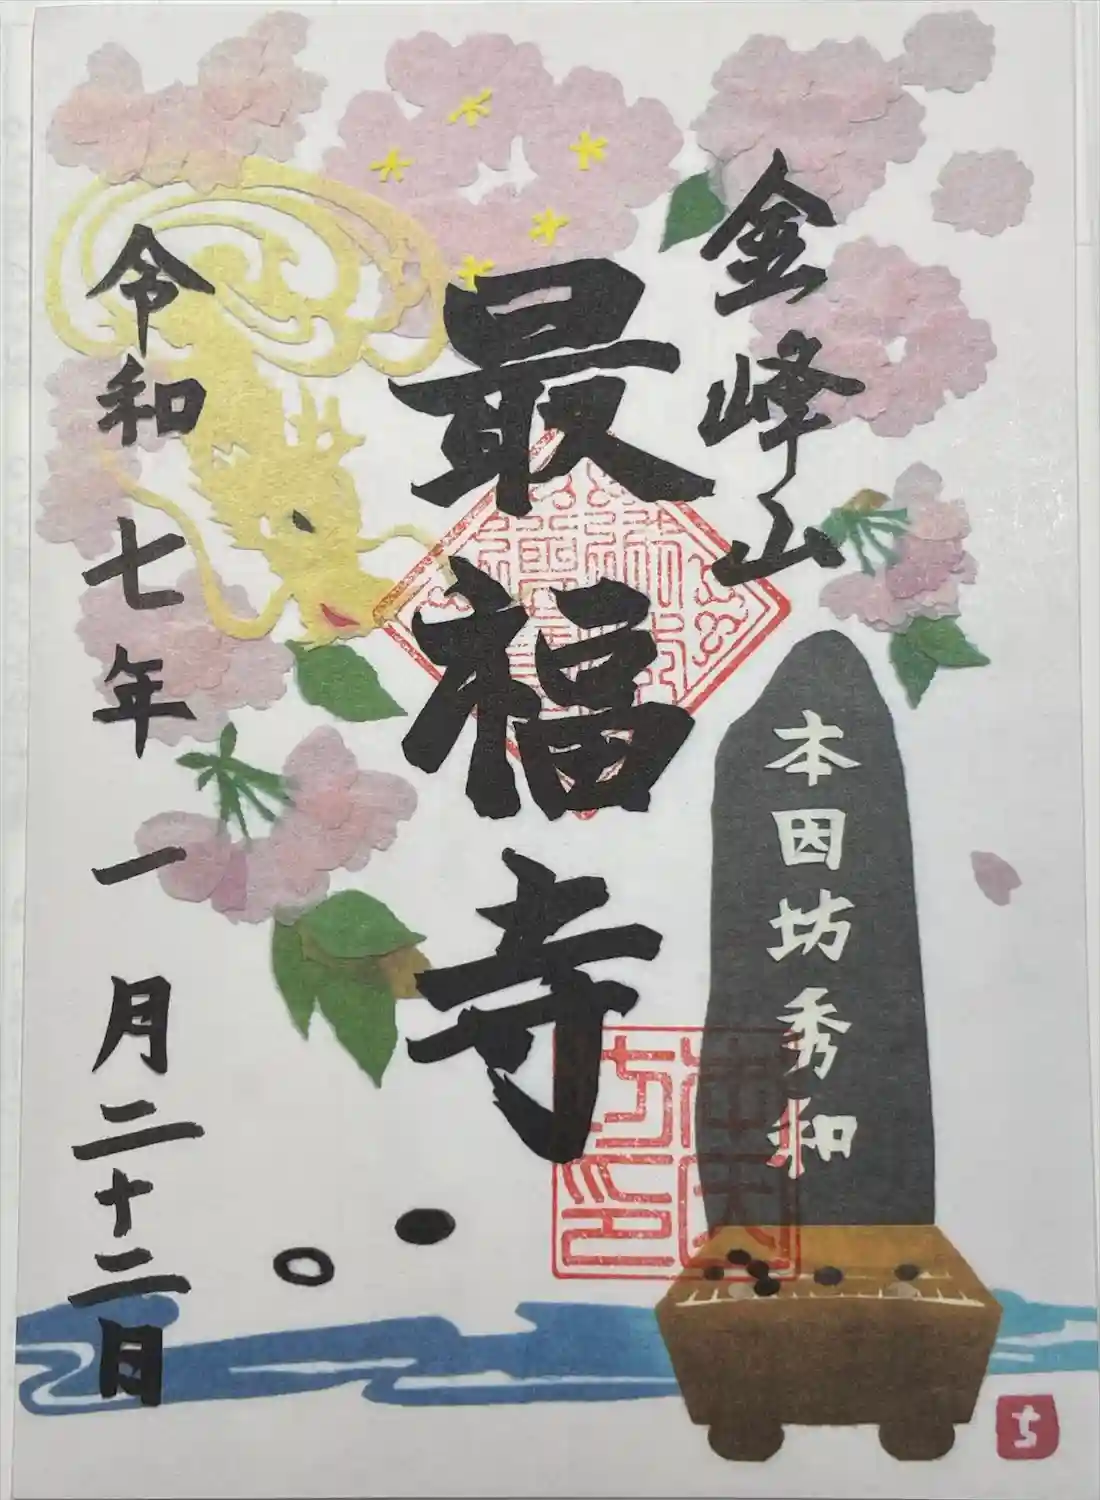 金峰山
最福寺
令和七年一月二十二日
本因坊秀和
ち